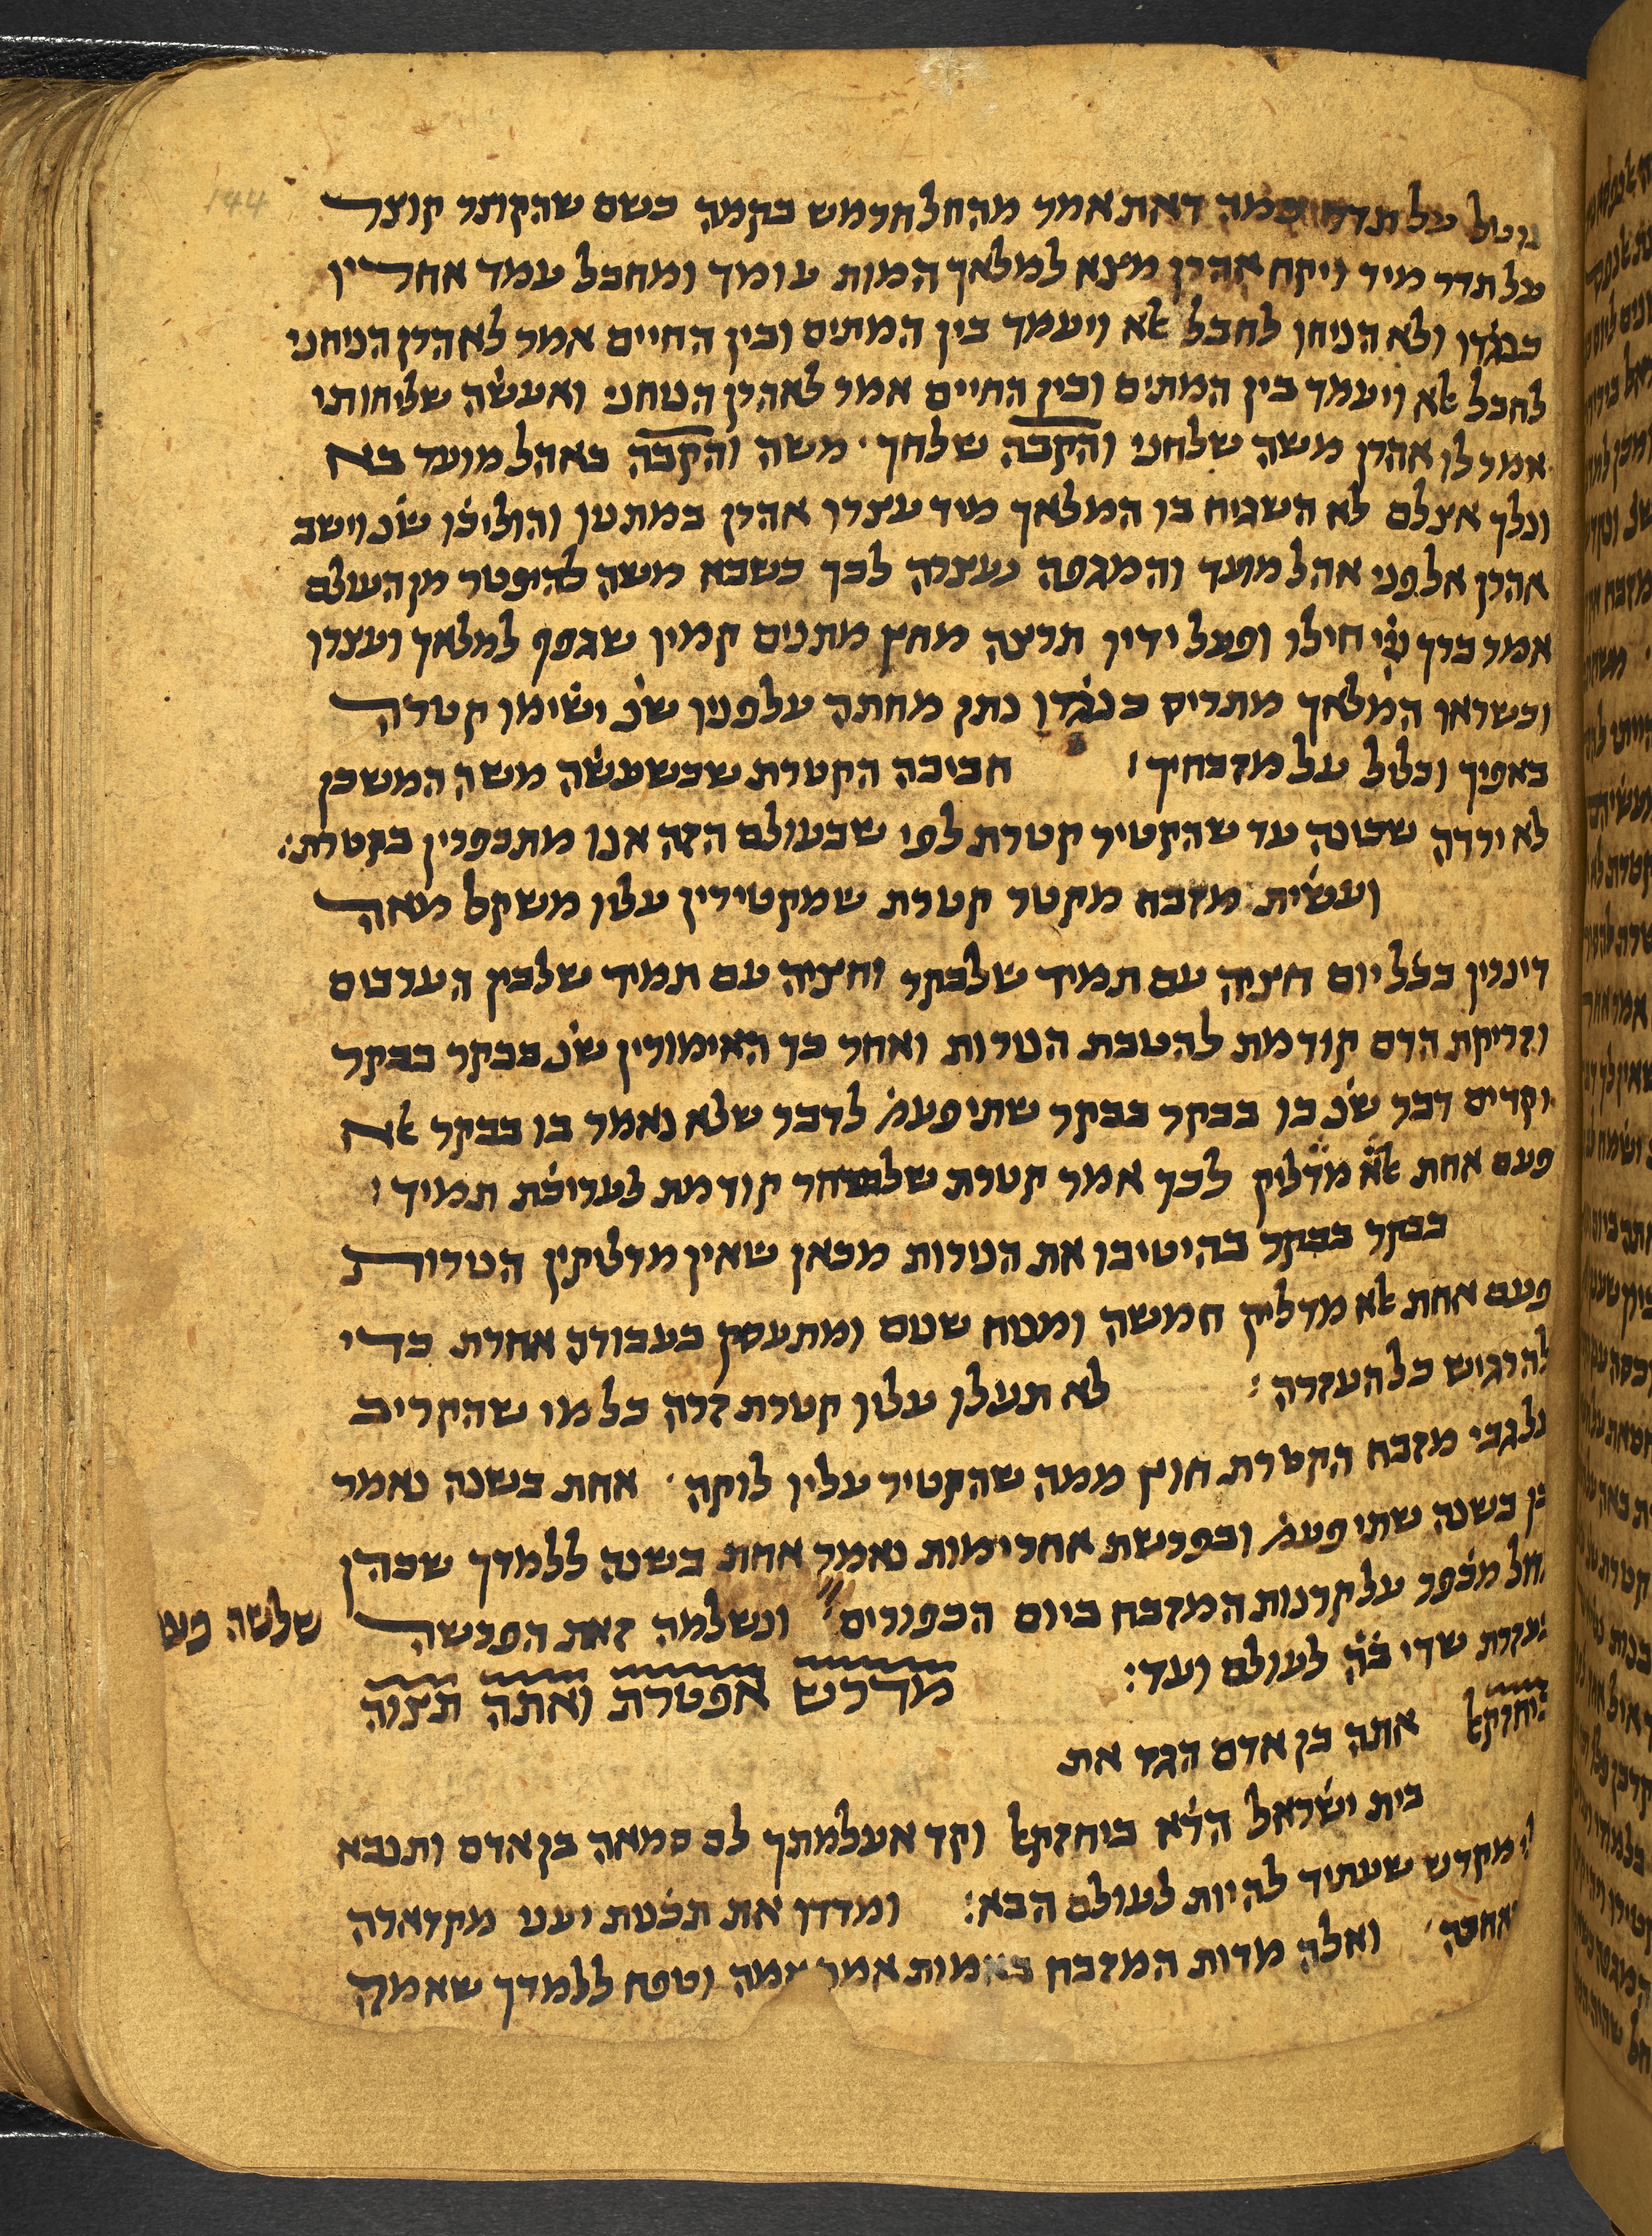 144
נוטל על תדר כמה דאת אמר מהחל חרמש בקמה כשם שהקוצר קוצר
על תדר מיד ויקח אהרן מצא למלאך המות עומד ומחבל עמד אחריו
כנגדו ולא הניחו לחבל אלא ויעמד בין המתים ובין החיים אמר לאהרן הניחני
לחבל אלא ויעמד בין המתים ובין החיים אמר לאהרן הניחני ואעשה שליחותי
אמר לו אהרן משה שלחני והקבה שלחך משה והקבה באהל מועד בא
ונלך אצלם לא השגיח בו המלאך מיד עצרו אהרן במתניו והוליכו שנ וישב
אהרן אל פני אהל מועד והמגפה נעצרה לכך כשבא משה להיפטר מן העולם
אמר ברך ייי חילו ופעל ידיו תרצה מחץ מתנים קמיו שגפף למלאך ועצרו
וכשראו המלאך מתריס כנגדו נתן מחתה על פניו שנ ישימו קטרה
באפיך וכליל על מזבחיך חביבה הקטרת שכשעשה משה המשכן
לא ירדה שכינה עד שהקטיר קטרת לפי שבעולם הזה אנו מתכפרין בקטרת
ועשית מזבח מקטר קטרת שמקטירין עליו משקל מאה
דינרין בכל יום חציה עם תמיד שלבקר וחציה עם תמיד שלבין הערבים
וזריקת הדם קודמת להטבת הנרות ואחר כך האימורין שנ בבקר בבקר
וקדים דבר שנ בו בבקר בבקר שתי פעמ לדבר שלא נאמר בו בבקר אלא
פעם אחת אלא מדליק לכך אמר קטרת שלשחר קודמת לעריכת תמיד
בבקר בבקר בהיטיבו את הנירות מכאן שאין מדליקין הנירות
פעם אחת אלא מדליק חמשה ומניח שנים ומתעסק בעבודה אחרת כדי
להרגיש כל העזרה לא תעלו עליו קטרת זרה כל מי שהקריב
על גבי מזבח הקטרת חוץ ממה שהקטיר עליו לוקה אחת בשנה נאמר
כן בשנה שתי פעמ ובפרשת אחרי מות נאמר אחת בשנה ללמדך שכהן
מכפר על קרנות המזבח ביום הכפורים ונשלמה זאת הפרשה שלשה פעמ
בעזרת שדי לעולם ועד
מדרש אפטרת ואתה תצוה
ביחזקאל אתה בן אדם הגד את
בית ישראל הדא ביחזקאל וקד אעלמתך לם סמאה בן אדם ותנבא
מקדש שעתיד להיות לעולם הבא ומדדו את תכנית יעני מקדארה
ואלה מדות המזבח באמות אמר אמה וטפח ללמדך שאמה